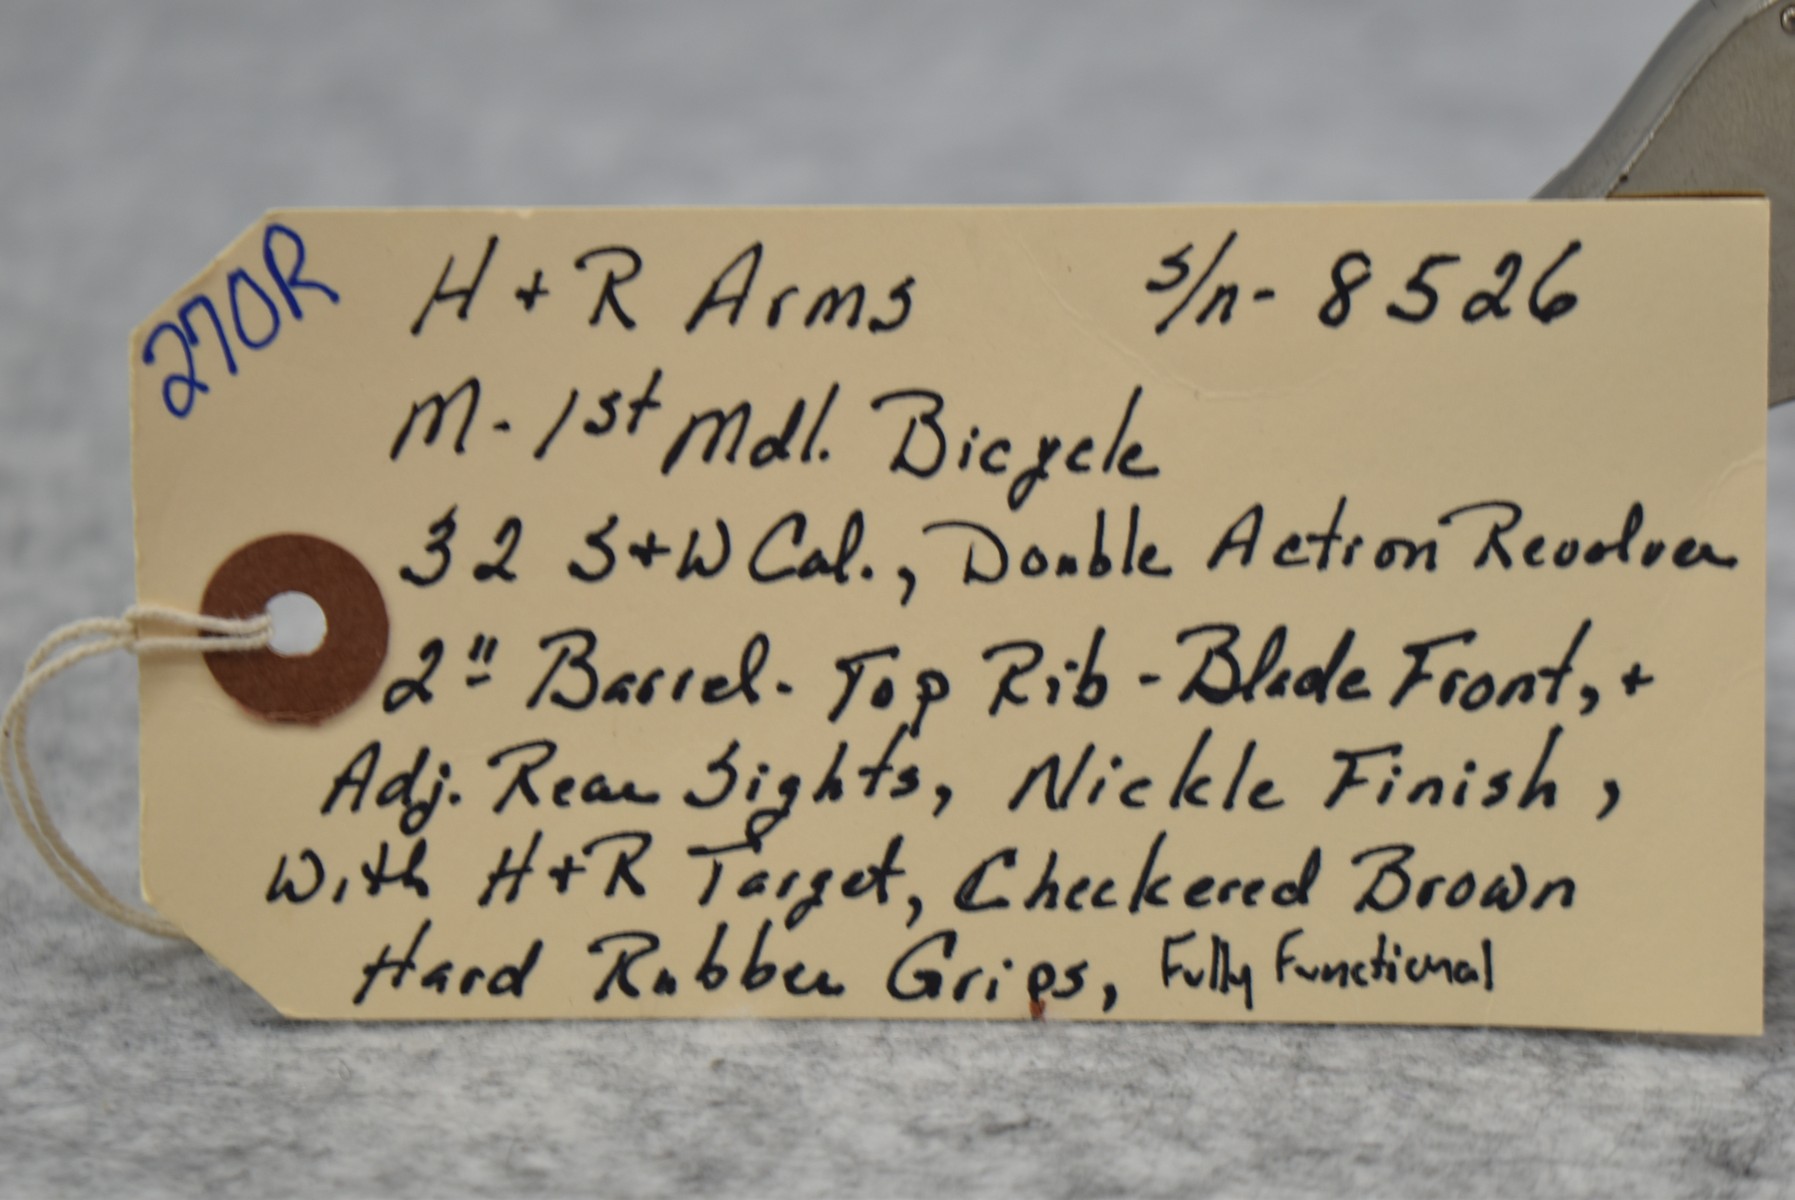 270R
H + R Arms s/n- 8526
M- 1st Mdl. Bicycle
32 S+W Cal., Double Action Revolver
2" Barrel- Top Rib - Blade Front, +
Adj. Rear Sights, Nickle Finish,
With H+R Target, Checkered Brown
Hard Rubber Grips, Fully Functional